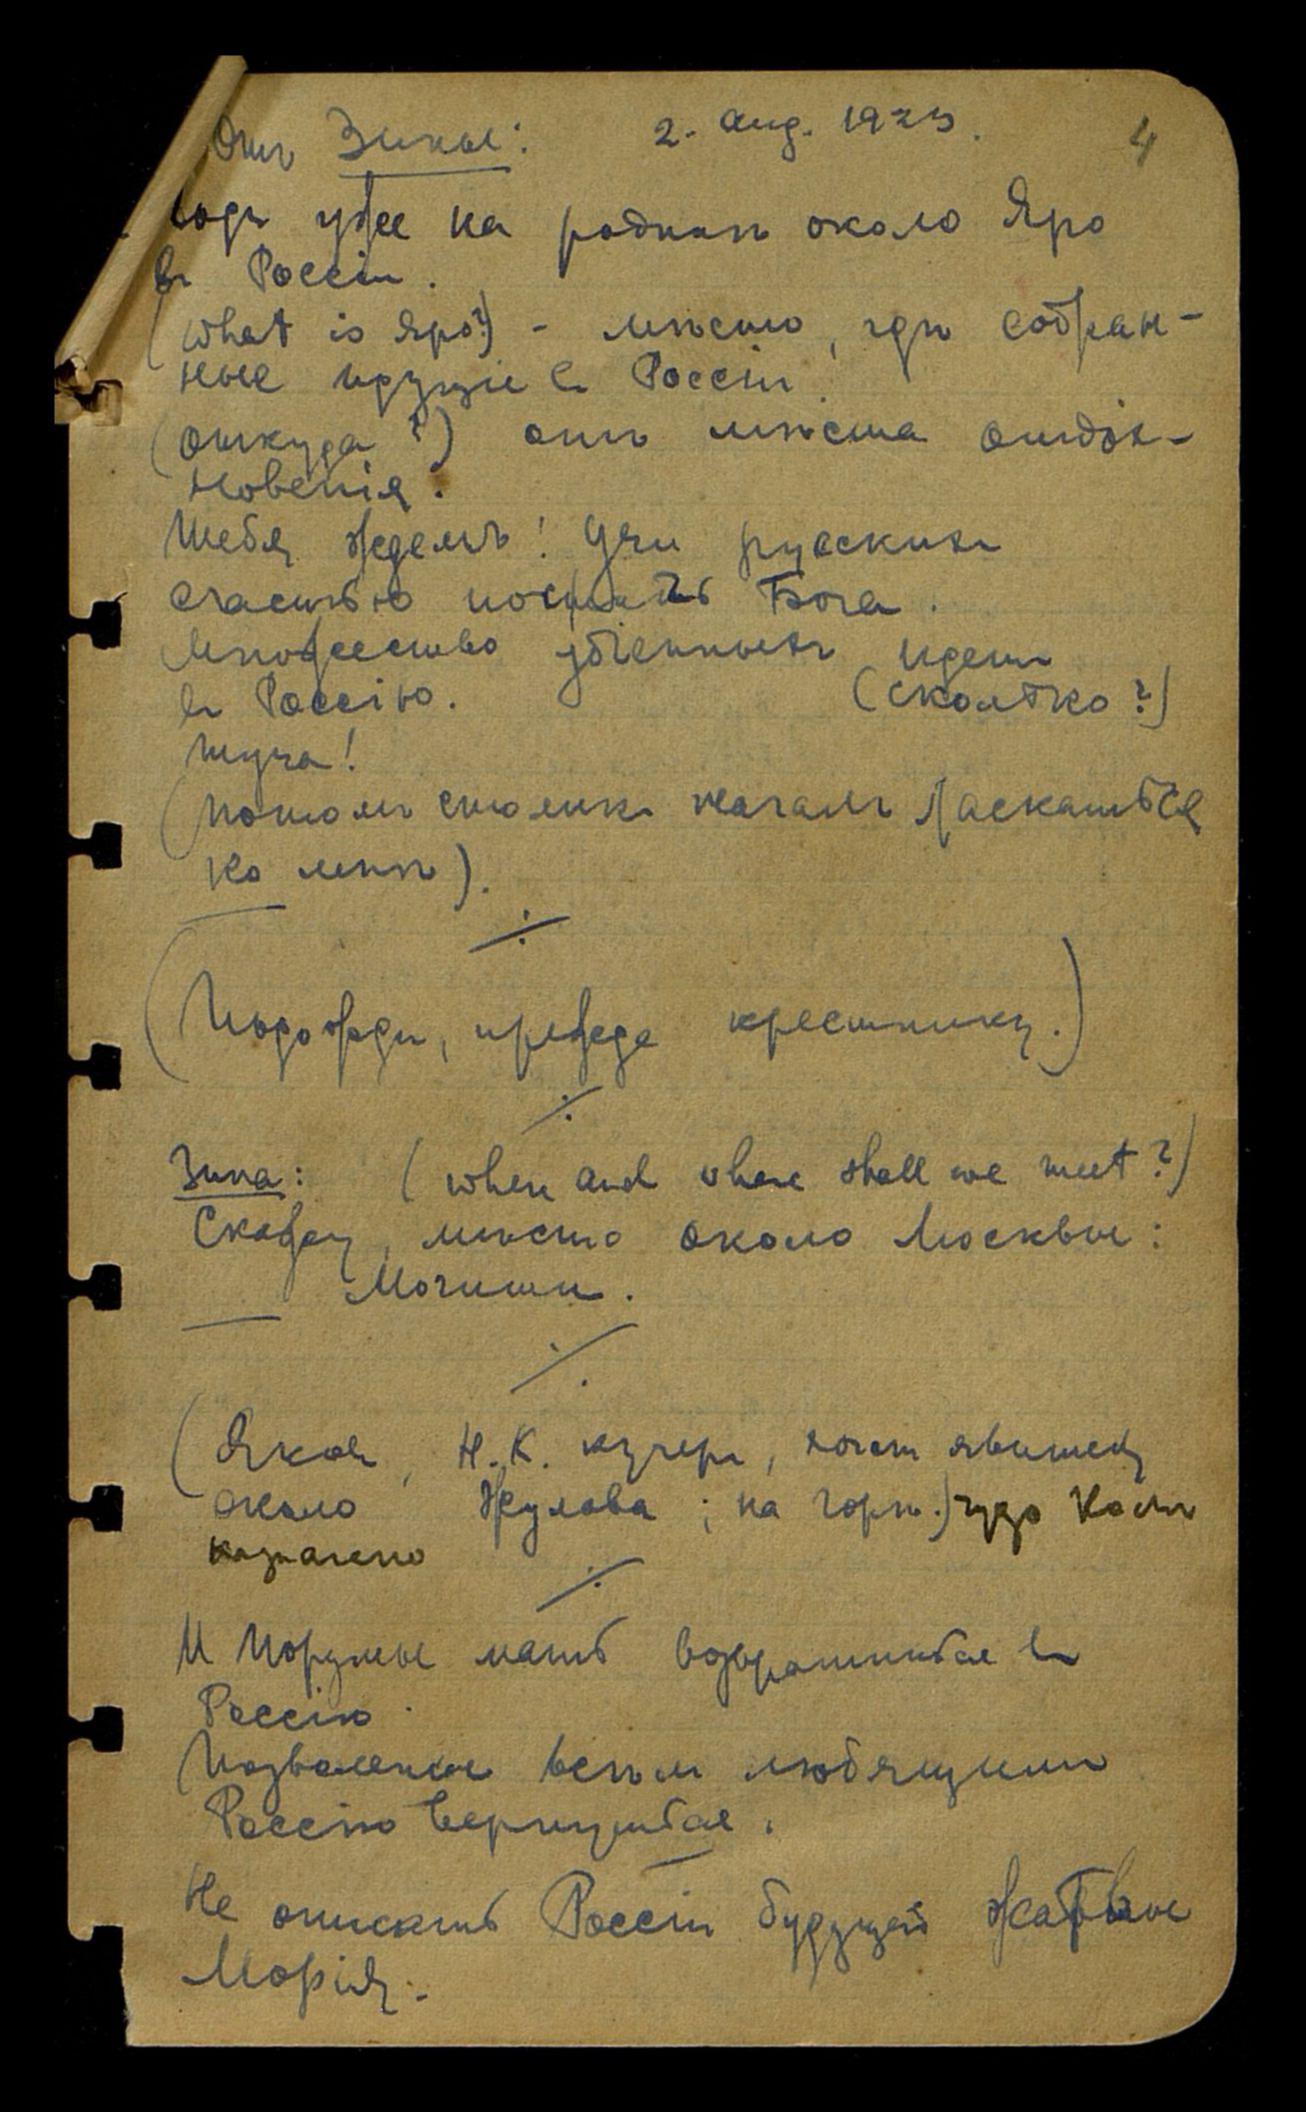 Отъ Зины: 2. Aug. 1923. 4
годъ уже на родинѣ около Яро
въ Россіи.
(What is Яро?) - мѣсто, гдѣ собран-
ные идущіе въ Россію
(откуда?) отъ мѣста отдох-
новенія.
Тебя ждемъ! Учи русскихъ
счастью постичь Бога.
Множество убіенныхъ идетъ
въ Россію. (сколько?)
Туча!
(потомъ столикъ началъ ласкаться
ко мнѣ).
(Подожди, прежде крестнику.)
Зина: (when and where shall we meet?)
Скажу, мѣсто около Москвы:
Могиши.
(Яковъ, Н.К. кучеръ, хочет явиться
около Жулова; на горѣ.) чудо Вамъ
назначено
И Порумы мать возвратиться въ
Россію.
Позволенье всѣмъ любящимъ
Россію вернуться.
Не описать Россіи будущей жатвы
Морія.